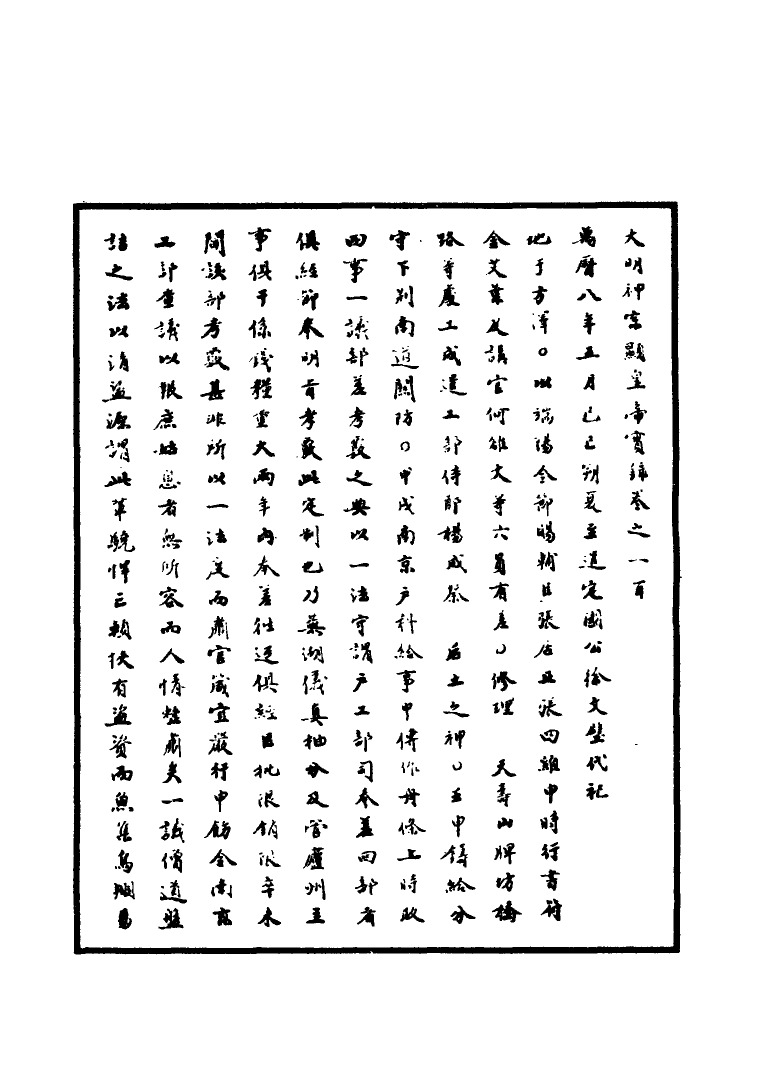 大明神宗顯皇帝實錄卷之一百
萬曆八年五月己巳朔夏至遣定國公徐文璧代祀
地于方澤○以端陽令節賜輔臣張居正張四維申時行書符
金艾葉及講官何雒文等六員有差○修理　天壽山牌坊橋
路等處工成遣工部侍郎楊成祭　后土之神○壬申鑄給分
守下荊南道關防○甲戌南京戶科給事中傅作舟條上時政
四事一議部差考覈之典以一法守謂戶工部司奉差回部有
俱經節奉明旨考覈此定制也乃蕪湖儀真抽分及管廬州主
事俱干係錢糧重大兩年內奉差往返俱經目批限銷限辛未
聞該部考覈甚非所以一法度而肅官箴宜嚴行申飭令南京
工部查議以振庶姑息者無所容而人情燈肅矣一議僧道盤
詰之法以消盜源謂此輩驍悍亡賴伏有盜資而魚集鳥捆易